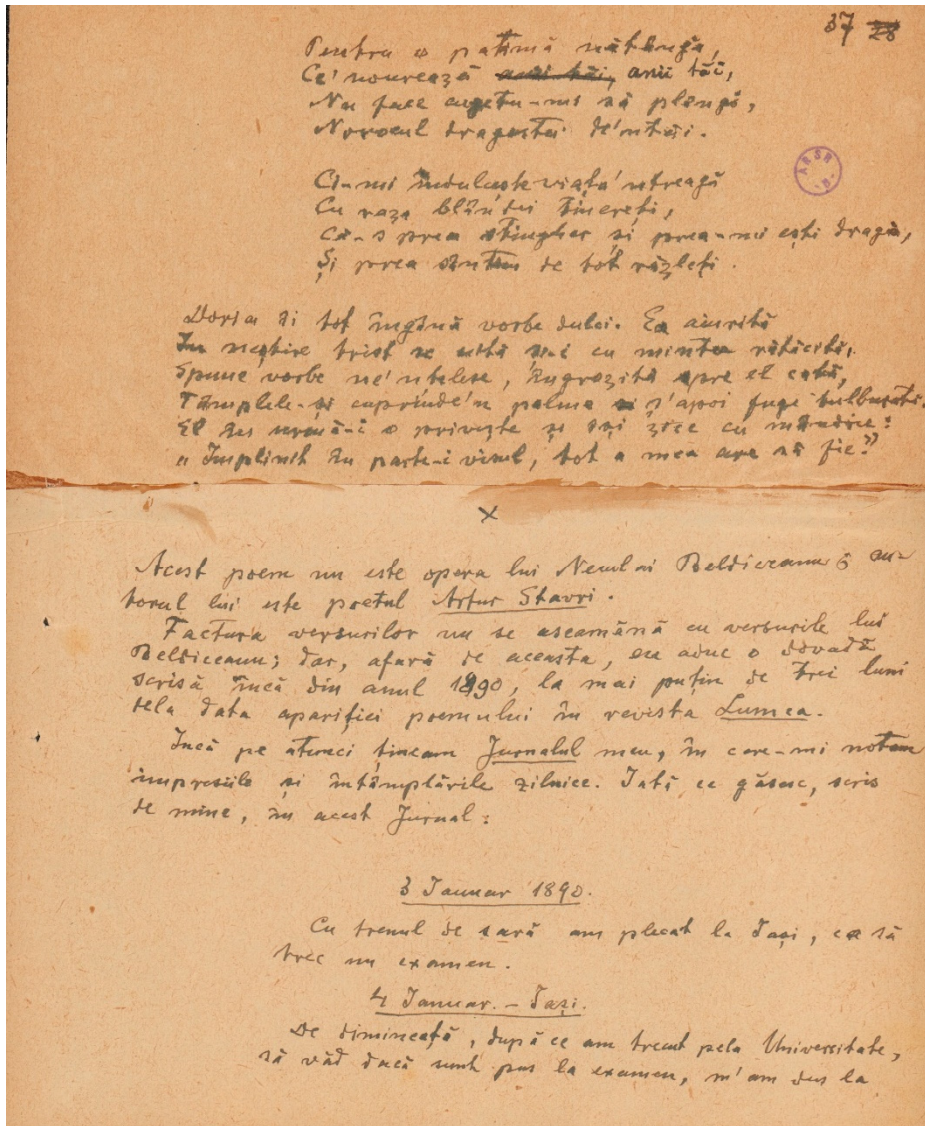 37 28
Pentru o patimă nătângă,
Ce'nourează anii tăi, anii tăi,
Nu face cugetu-mi să plângă,
Norocul dragostei de'ntăi.
ARSR
-B-
Ci-mi îndulcește viața'ntreagă
Cu raza blândei tinereți,
Că-s prea stingher și prea-mi ești dragă,
Și prea suntem de tot răzleți.
Doria îi tot îngână vorbe dulci. Ea aiurită
In neștire trist se uită și-i cu mintea rătăcită,
Spune vorbe ne'nțelese, îngrozită spre el cată,
Tâmplele-și cuprinde'n palme și s'apoi fuge tulburată.
El din urmă-i o privește și își zice cu mândrie:
„Implinit în parte-i visul, tot a mea are să fie?”
×
Acest poem nu este opera lui Neculai Beldiceanu ; au-
torul lui este poetul Artur Stavri.
Factura versurilor nu se aseamănă cu versurile lui
Beldiceanu; dar, afară de aceasta, eu aduc o dovadă
scrisă încă din anul 1890, la mai puțin de trei luni
dela data apariției poemului în revista Lumea.
Încă pe atunci țineam Jurnalul meu, în care-mi notam
impresiile și întâmplările zilnice. Iată ce găsesc, scris
de mine, în acest Jurnal:
3 Ianuar 1890.
Cu trenul de sară am plecat la Iași, ca să
trec un examen.
4 Ianuar. - Iași.
De dimineață, după ce am trecut pela Universitate,
să văd dacă sunt pus la examen, m'am dus la